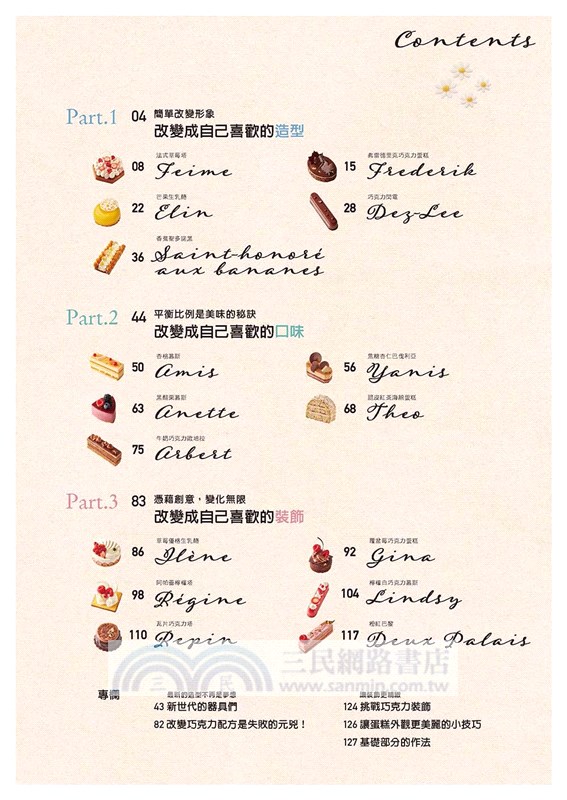 Contents
Part.1 04 簡單改變形象
改變成自己喜歡的造型
08 法式草莓塔
Feime
15 弗雷德里克巧克力蛋糕
Frederik
22 芒果生乳酪
Elin
28 巧克力閃電
Dez-Lee
36 香蕉聖多諾黑
Saint-honoré
aux bananes
Part.2 44 平衡比例是美味的秘訣
改變成自己喜歡的口味
50 杏桃慕斯
Amis
56 黑糖杏仁巴伐利亞
Yanis
63 黑醋栗慕斯
Anette
68
Theo
75 牛奶巧克力歐培拉
Arbert
Part.3 83 憑藉創意，變化無限
改變成自己喜歡的裝飾
86 草莓優格生乳酪
Ilène
92 覆盆莓巧克力蛋糕
Gina
98 阿帕蕾檸檬塔
Régine
104 檸檬白巧克力慕斯
Lindsy
110 瓦片巧克力塔
Pepin
117 橙紅巴黎
Deux Palais
三民網路書店
www.sanmin.com.tw
三 民
專欄
43 新世代的器具們
82 改變巧克力配方是失敗的元兇！
124 挑戰巧克力裝飾
126 讓蛋糕外觀更美麗的小技巧
127 基礎部分的作法